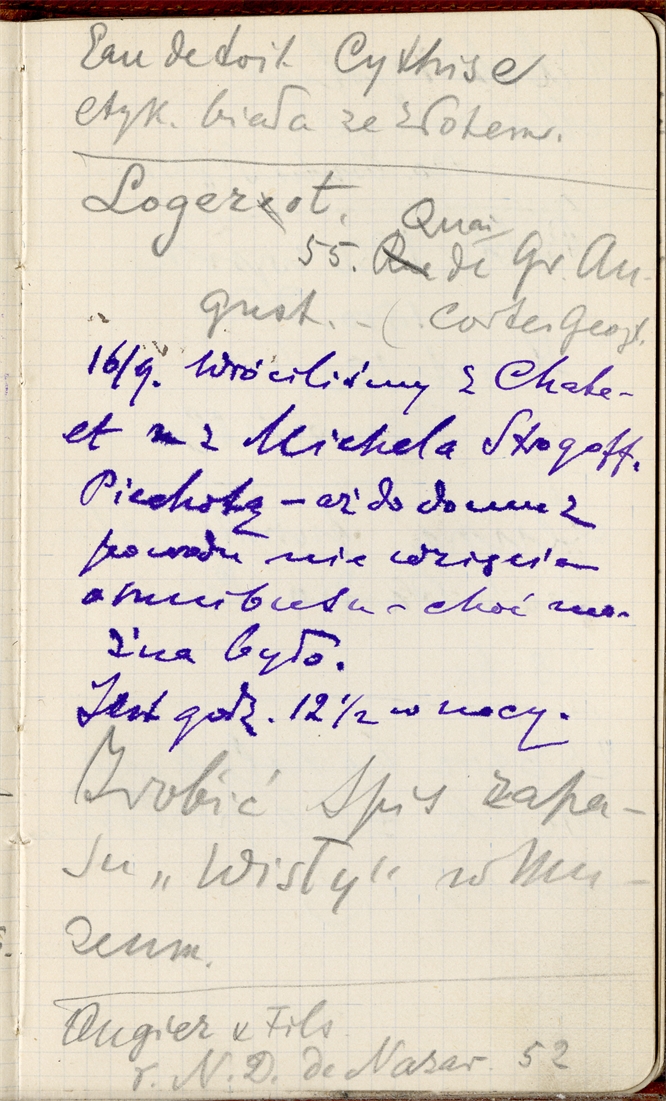 Eau de toil. Cythise
etyk. biała ze złotem.
Logerot.
Quai
55. Rue de Gr. Au-
gust. - (Cortes Geogr.
16/9. Wróciliśmy z Chate-
et z Michela Strogoff.
Piechotą – aż do domu z
powodu nie wzięcia
omnibusu – choć mo-
żna było.
Jest godz. 12 1/2 w nocy.
Zrobić Spis zapa-
su „Wisły“ w Mu-
zeum.
Ougier & Fils
r. N. D. de Nazar. 52